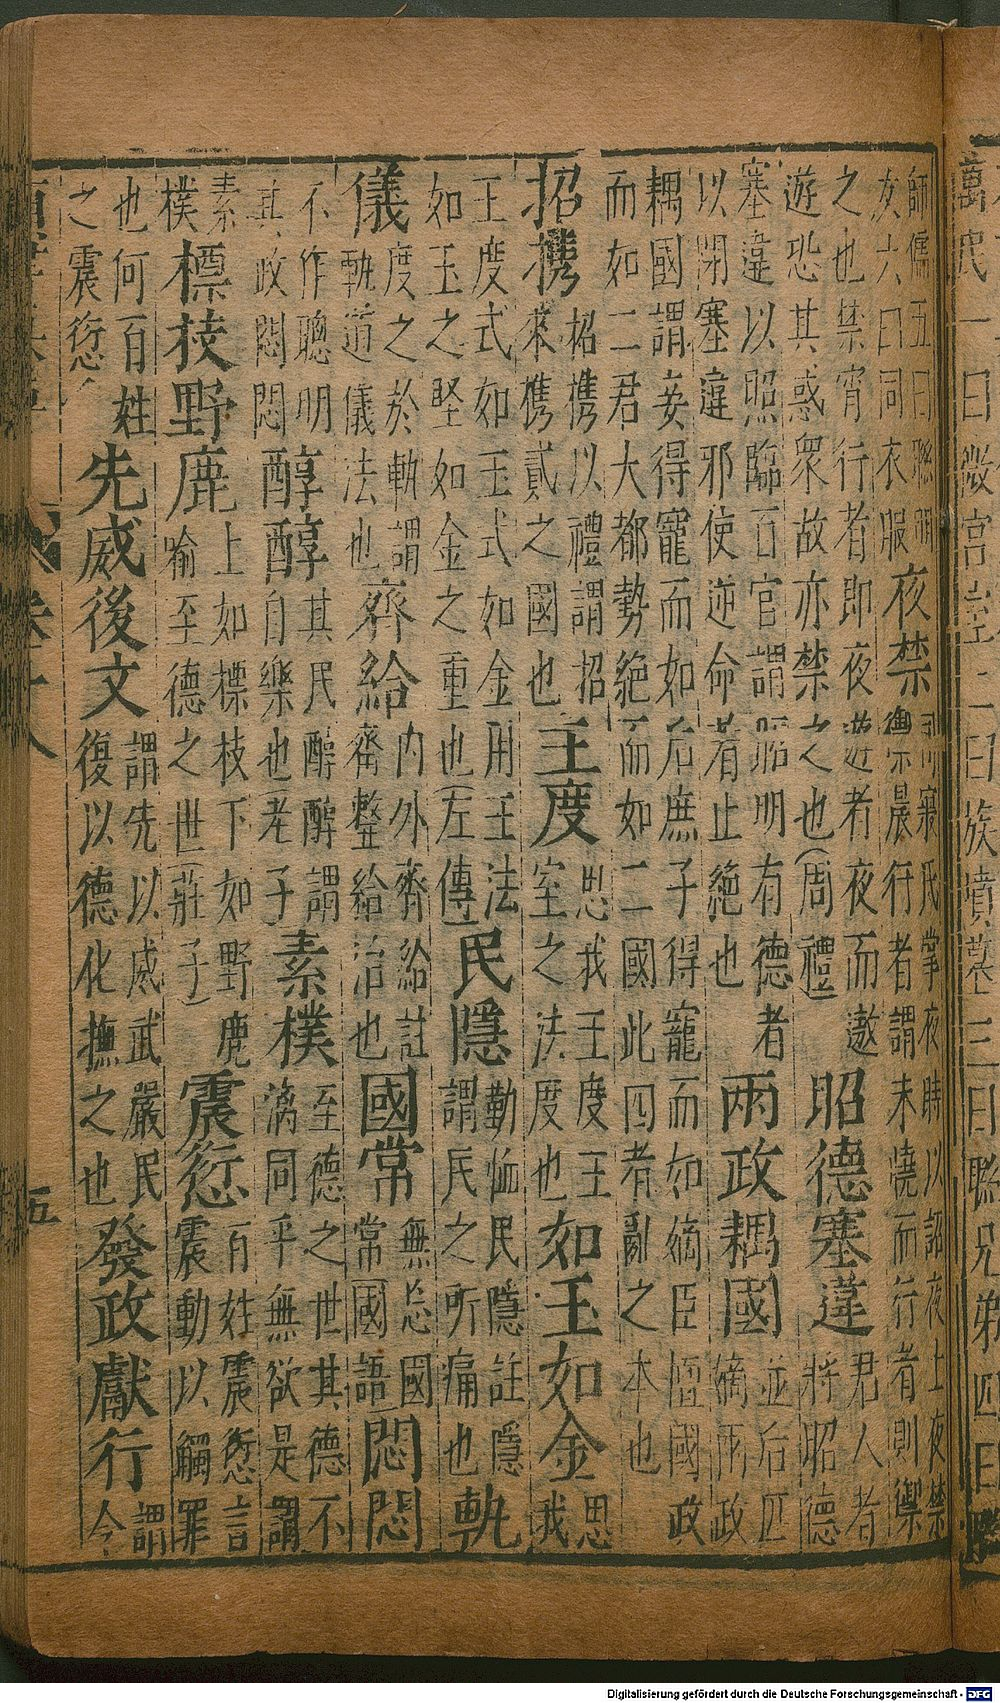 萬民一曰媺宮室二曰族墳墓三曰聯兄弟四曰聯
師儒五曰聯朋
友六曰同衣服
夜禁
司寤氏掌夜時以詔夜士夜禁
禦晨行者謂未曉而行者則禦
之也禁宵行者即夜遊者夜而遨
遊恐其惑衆故亦禁之也(周禮)
昭德塞違
君人者
將昭德
塞違以照臨百官謂昭明有德者
以閉塞違邪使逆命者止絕也
兩政耦國
並后匹
嫡兩政
耦國謂妾得寵而如后庶子得寵而如嫡臣擅國政
而如二君大都勢絕而如二國此四者亂之本也
招攜
招攜以禮謂招
來攜貳之國也
王度
思我王度王
室之法度也
如玉如金
思
我
王度式如玉式如金用王法
如玉之堅如金之重也(左傳)
民隱
勤恤民隱註隱
謂民之所痛也
軌
儀
度之於軌謂
軌道儀法也
齊給
內外齊給註
齊整給治也
國常
無忘國
常(國語)
悶悶
不作聰明
其政悶悶
醇醇
其民醇醇謂
自樂也(老子)
素樸
至德之世其德不
漓同乎無欲是謂
素
樸
標枝野鹿
上如標枝下如野鹿
喻至德之世(莊子)
震愆
百姓震愆言
震動以觸罪
也何百姓
之震愆
先威後文
謂先以威武嚴民
復以德化撫之也
發政獻行
謂
今
卷十八
五
Digitalisierung gefördert durch die Deutsche Forschungsgemeinschaft - DFG